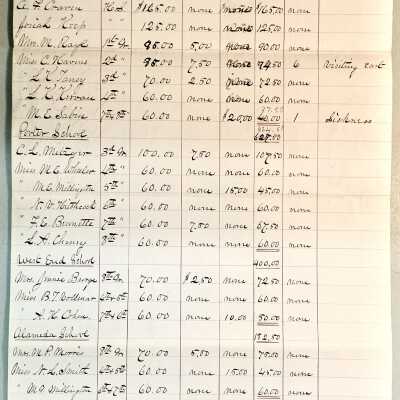 C. H. Craven H.S. $165.00 none none $165.00 none
Josiah Keep " 125.00 none none 125.00 none
Mrs. M. Raye 1st Gr. 85.00 5.00 none 90.00 none
Miss C. 2d " 85.00 7.50 94.50 6 Visiting East
" 3d " 70.00 2.50 none 72.50 none
" L. 4th " 60.00 none none 60.00 none
" M. E. Sabin 7th & 8th 60.00 none $20.00 40.00 1 Sickness
Porter School 627.00
C. L. Metzger 3d Gr. 100.00 7.50 none 107.50 none
Miss M. E. Whaler 4th " 60.00 none none 60.00 none
" M. E. Millington 5th " 60.00 none 15.00 45.00 none
" N. W. Hitchcock 6th " 60.00 none none 60.00 none
" F. E. Burnette 7th " 60.00 7.50 none 67.50 none
" L. H. Cheney 8th " 60.00 none none 60.00 none
West End School 400.00
Mrs. Jennie 3d Gr. 70.00 $2.50 none 72.50 none
Miss B. T. 4th & 5th 60.00 none none 60.00 none
" H. K. 7th & 8th 60.00 none 10.00 50.00 none
Alameda School 182.50
Mrs. M. P. Morris 3d Gr. 70.00 5.00 none 75.00 none
Miss N. L. Smith 4th & 5th 60.00 none 15.00 45.00 none
" M. A. Millington 6th & 7th 60.00 none none 60.00 none